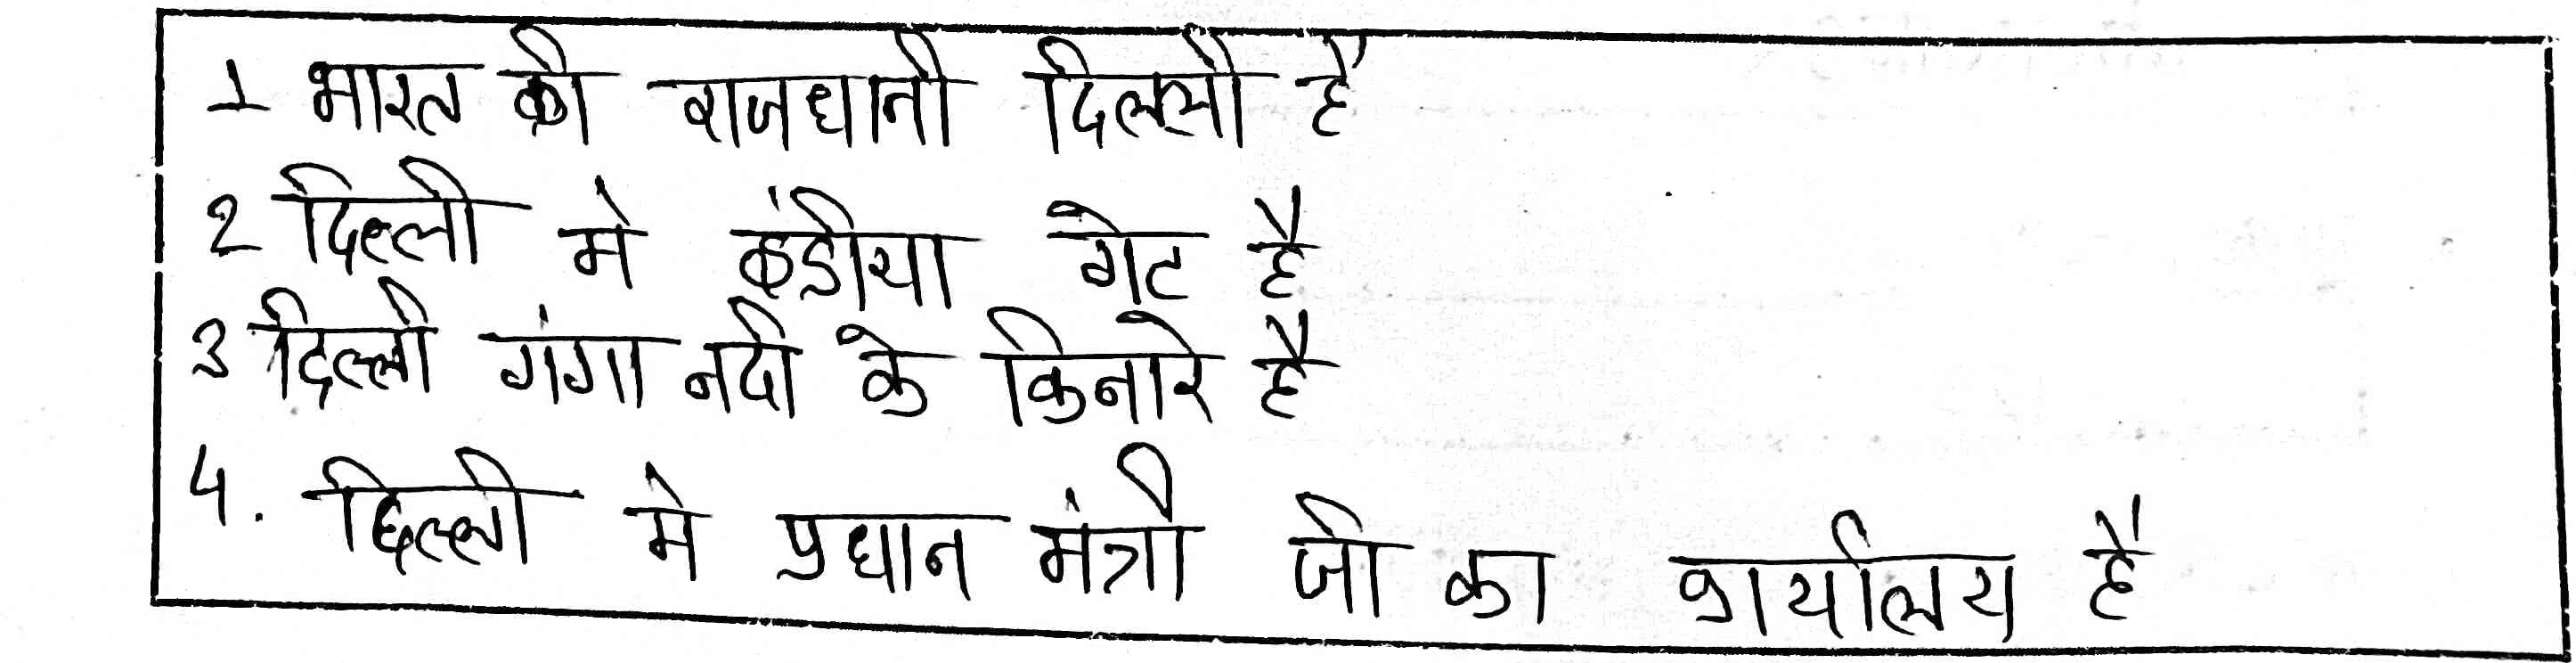 1 भारत की राजधानी दिल्ली है
2 दिल्ली मे इंडीया गेट है
3 दिल्ली गंगा नदी के किनारे है
4. दिल्ली मे प्रधान मंत्री जी का कार्यालय है